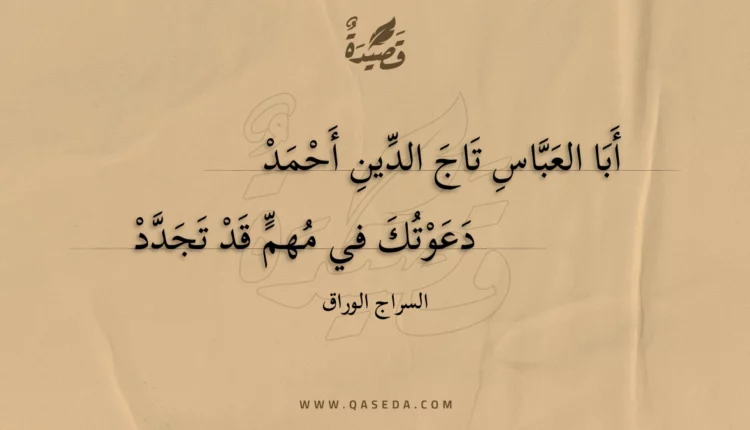 قَصِيدَةٌ
أَبَا العَبَّاسِ تَاجَ الدِّينِ أَحْمَدْ
دَعَوْتُكَ في مُهمٍّ قَدْ تَجَدَّدْ
السراج الوراق
WWW.QASEDA.COM